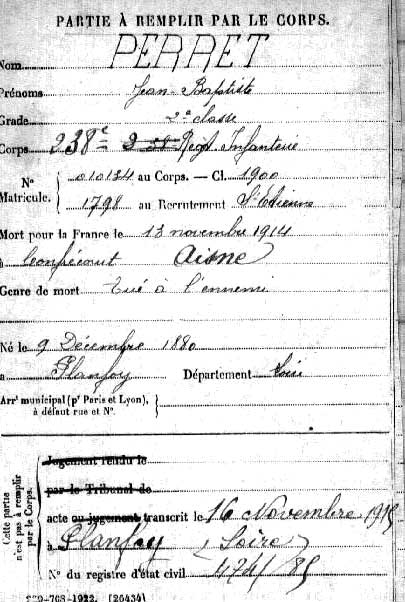 PARTIE À REMPLIR PAR LE CORPS.
Nom PERRET
Prénoms Jean-Baptiste
Grade 2e classe
Corps 238e Regt Infanterie
No Matricule. { 010134 au Corps. — Cl. 1900
1798 au Recrutement St Etienne
Mort pour la France le 13 novembre 1914
à Confrécourt Aisne
Genre de mort tué à l'ennemi
Né le 9 Décembre 1880
à Planfoy Département Loire
Arrt municipal (pr Paris et Lyon), à défaut rue et No. }
Cette partie n'est pas à remplir par le Corps.
Jugement rendu le
par le Tribunal de
acte ou jugement transcrit le 16 Novembre 1915
à Planfoy (Loire)
No du registre d'état civil 474/85
[26434]